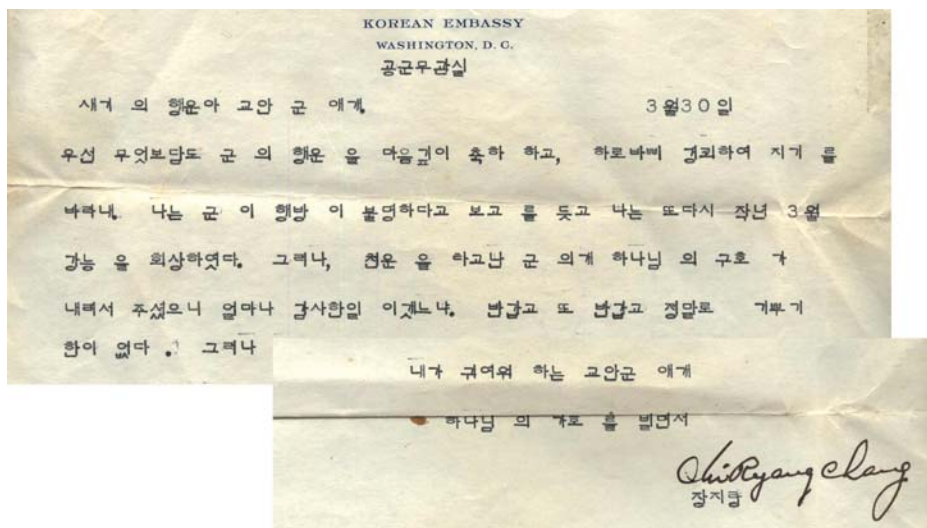 KOREAN EMBASSY
WASHINGTON, D. C.
공군무관실
새기 의 행운아 교안 군 애개. 3월30일
우선 무엇보담도 군 의 행운 을 마음깊이 축하 하고, 하로바삐 경쾌하여 지기 를
바라내. 나는 군 이 행방 이 불명하다고 보고 를 듯고 나는 또다시 작년 3월
강능 을 회상하엿다. 그러나, 천운 을 타고난 군 의개 하나님 의 구호 가
내려서 주셨으니 얼마나 감사한일 이겠느냐. 반갑고 또 반갑고 정말로 기뿌기
한이 없다 . 그러나
내가 귀여워 하는 교안군 애개
하나님 의 가호 를 빌면서
Chi Ryang Chang
장지량